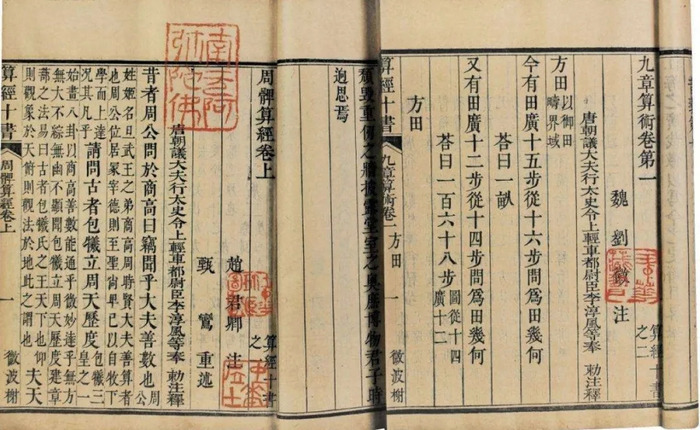 九章算術卷第一
算經十書之二
魏劉徽注
唐朝議大夫行太史令上輕車都尉臣李淳風等奉 勅注釋
方田以御田疇界域
今有田廣十五步從十六步問爲田幾何
荅曰一畝
又有田廣十二步從十四步問爲田幾何
荅曰一百六十八步圖從十四廣十二
方田
算經十書 九章算術卷一 方田 一 微波榭
頹毀重仞之牆披露堂室之奧庶博物君子時
迥思焉
周髀算經卷上
算經十書之一
趙君卿 注
甄鸞 重述
唐朝議大夫行太史令上輕車都尉臣李淳風等奉 勅注釋
南无阿弥陀佛
昔者周公問於商高曰竊聞乎大夫善數也周公
姓姬名旦武王之弟商高周時賢大夫善算者
也周公位居冢宰德則至聖尚早已以自牧下
學而上達
況其凡乎
請問古者包犧立周天歷度包犧三皇之一
始畫八卦以商高善數能通乎微妙達乎無方
無大不綜無幽不顯聞包犧立周天歷度建章
蔀之法易曰古者包犧氏之王天下也仰
則觀象於天俯則觀法於地此之謂也
夫天
算經十書 周髀算經卷上 一 微波榭